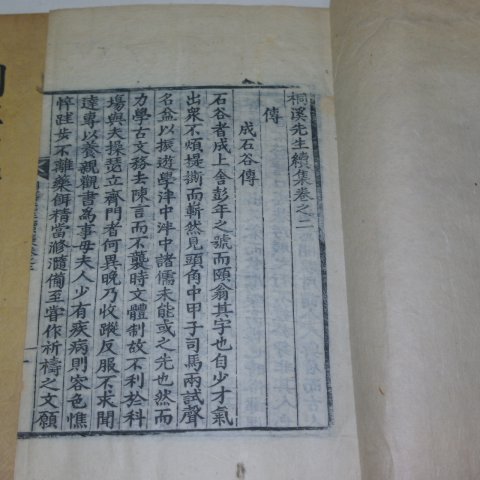 桐溪先生續集卷之二
傳
成石谷傳
石谷者成上舍彭年之號而頤翁其字也自少才氣
出衆不煩提撕而嶄然見頭角中甲子司馬兩試聲
名益以振遊學泮中泮中諸儒未能或之先也然而
力學古文務去陳言而不襲時文體制故不利於科
場與夫操瑟立齊門者何異晚乃收蹤反服不求聞
達專以養親觀書爲事母夫人少有疾病則容色憔
悴跬步不離藥餌精當滫瀡備至嘗作祈禱之文願